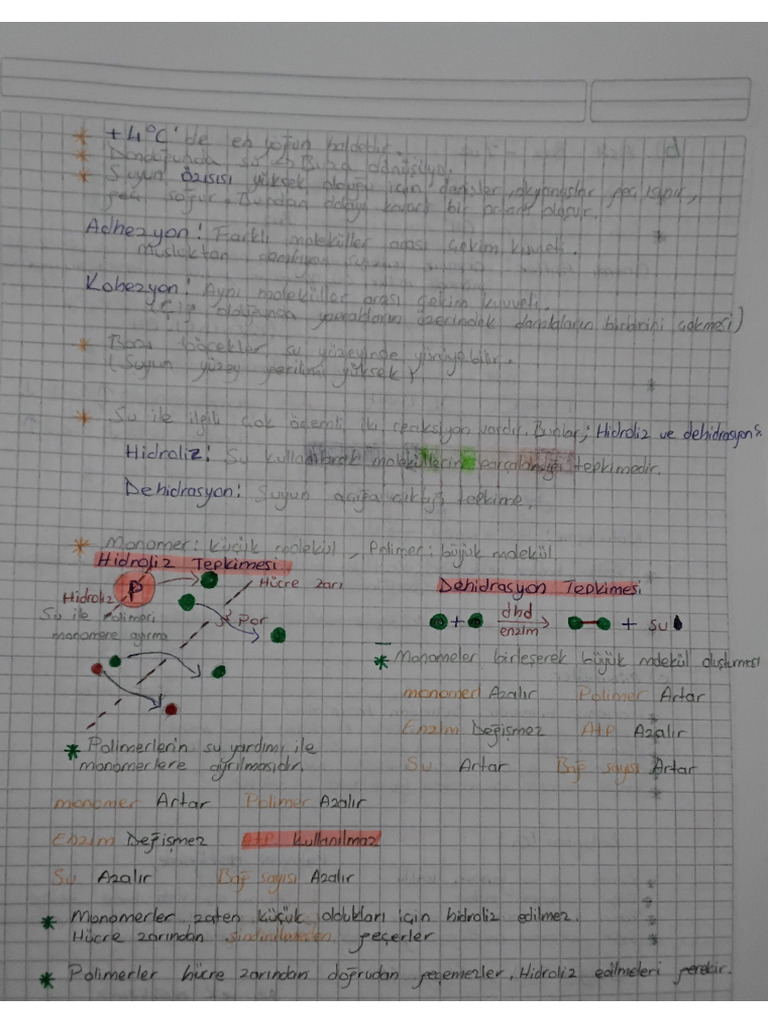 * +4°C'de en yoğun haldedir.
* Donduğunda su → Buza dönüşüyo.
* Suyun özısısı yüksek olduğu için denizler, okyanuslar geç ısınır,
geç soğur. Bundan dolayı bir ortam oluşur.
Adhezyon: Farklı moleküller arası çekim kuvveti.
Musluktan damlayan
Kohezyon: Aynı moleküller arası çekim kuvveti.
(Çiğ olduğunda yaprakların üzerindeki damlaların birbirini çekmesi)
* Bazı böcekler su yüzeyinde yürüyebilir.
(Suyun yüzey gerilimi yüksek)
* Su ile ilgili çok önemli iki reaksiyon vardır. Bunlar; Hidroliz ve dehidrasyon
Hidroliz: Su kullanılarak moleküllerin parçalandığı tepkimedir.
Dehidrasyon: Suyun açığa çıktığı tepkime.
* Monomer: küçük molekül, Polimer: büyük molekül
Hidroliz Tepkimesi
P
Hücre zarı
Hidroliz
Su ile Polimeri
monomere ayırma
Por
* Polimerlerin su yardımı ile
monomerlere ayrılmasıdır.
monomer Artar Polimer Azalır
Enzim Değişmez ATP kullanılmaz
Su Azalır Bağ sayısı Azalır
Dehidrasyon Tepkimesi
+ dhd enzim → + Su
* Monomeler birleşerek büyük molekül oluşturması
monomer Azalır Polimer Artar
Enzim Değişmez Atp Azalır
Su Artar Bağ sayısı Artar
* Monomerler zaten küçük oldukları için hidroliz edilmez.
Hücre zarından sindirilmeden geçerler
* Polimerler hücre zarından doğrudan geçemezler, Hidroliz edilmeleri gerekir.